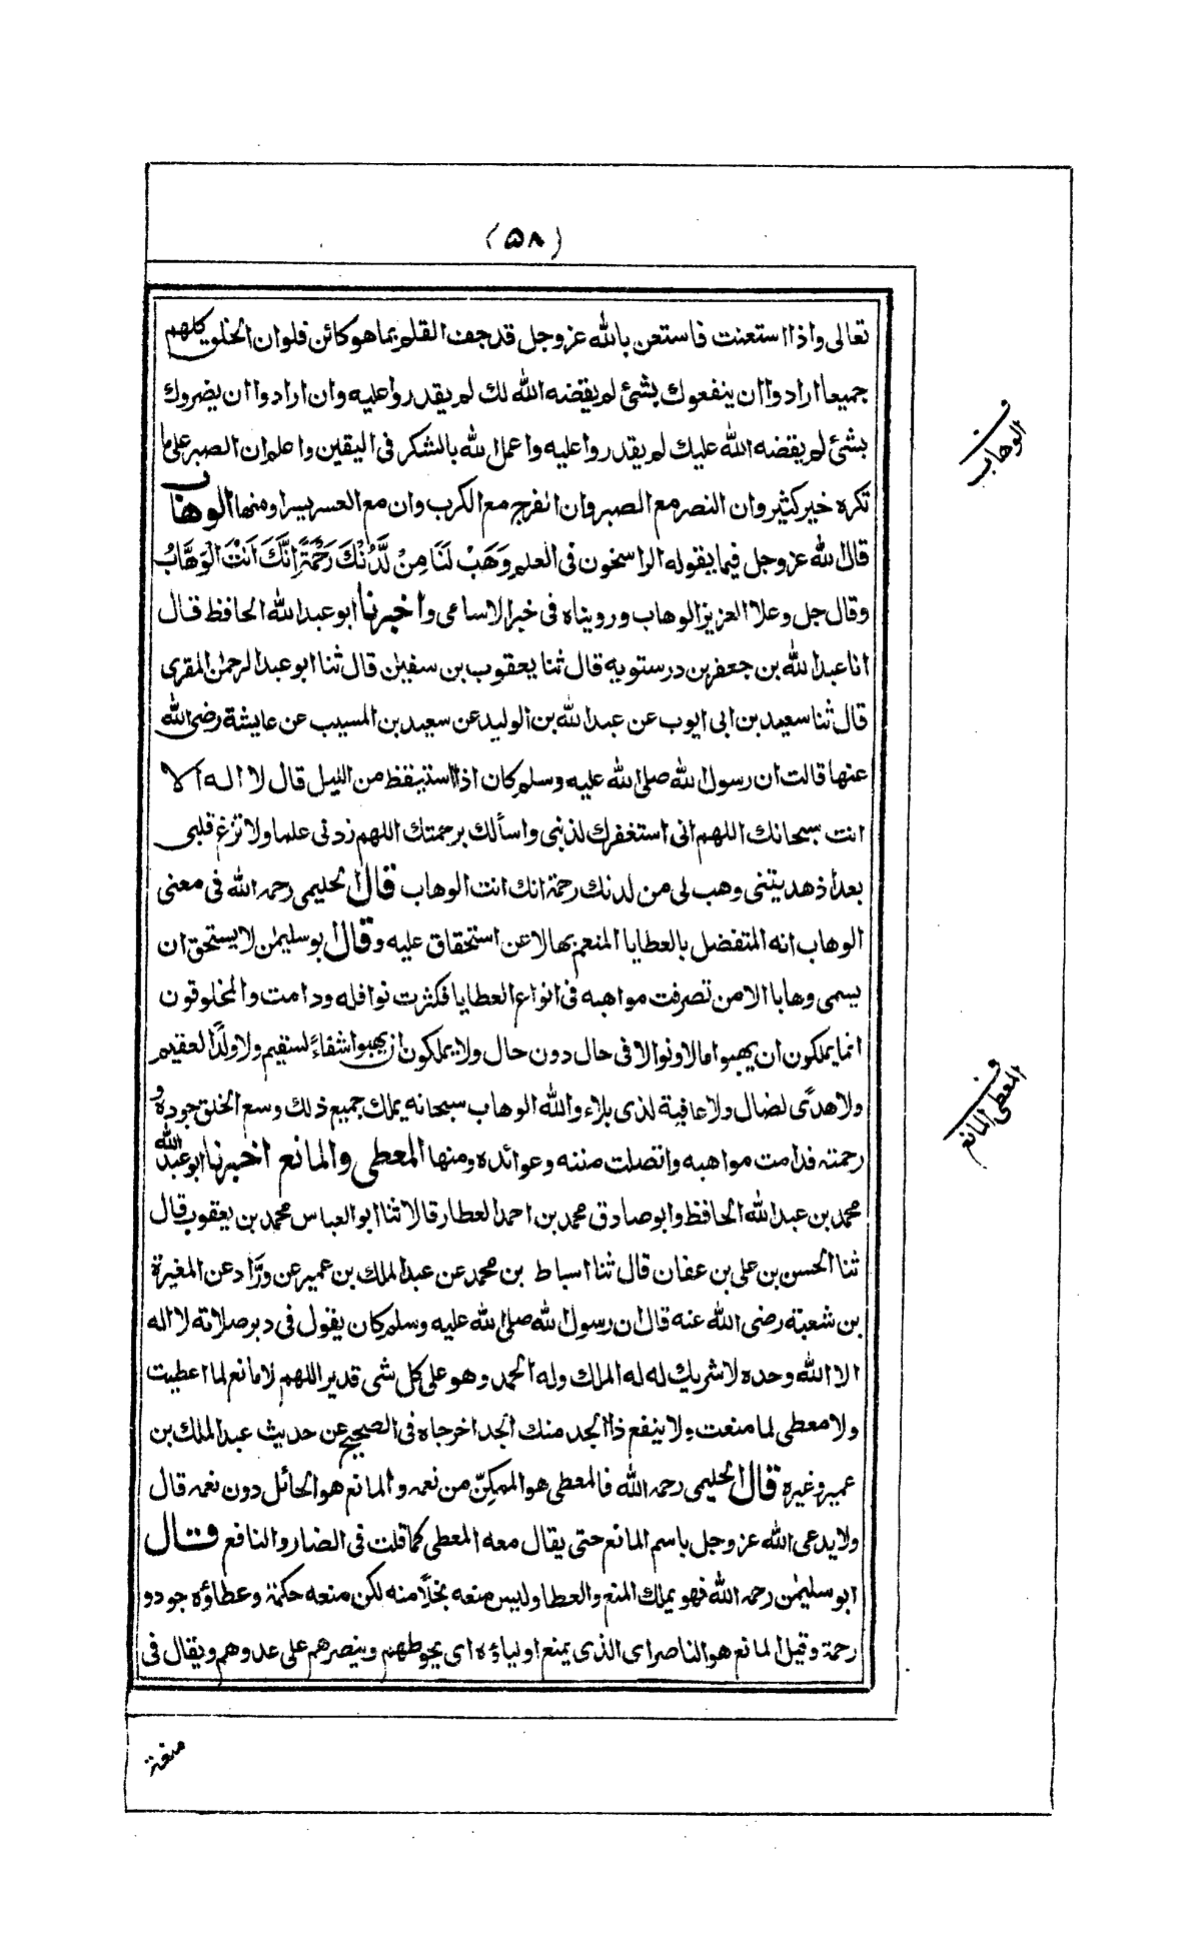 (۵۸)
تعالى واذا استعنت فاستعن بالله عز وجل قد جف القلم بما هو كائن فلو ان الخلق كلهم
جميعا ارادوا ان ينفعوك بشئ لم يقضه الله لك لم يقدروا عليه وان ارادوا ان يضروك
بشئ لم يقضه الله عليك لم يقدروا عليه واعمل لله بالشكر فى اليقين واعلم ان الصبر على ما
تكره خير كثير وان النصر مع الصبر وان الفرج مع الكرب وان مع العسر يسرا ومنها الوهاب
قال الله عز وجل فيما يقوله الراسخون فى العلم وَهَبْ لَنَا مِنْ لَّدُنْكَ رَحْمَةً اِنَّكَ اَنْتَ الْوَهَّابُ
وقال جل وعلا العزيز الوهاب ورويناه فى خبر الاسامى واخبرنا ابو عبد الله الحافظ قال
انا عبد الله بن جعفر بن درستويه قال ثنا يعقوب بن سفيٰن قال ثنا ابو عبد الرحمٰن المقرى
قال ثنا سعيد بن ابى ايوب عن عبد الله بن الوليد عن سعيد بن المسيب عن عايشة رضى الله
عنها قالت ان رسول الله صلى الله عليه وسلم كان اذا استيقظ من الليل قال لا اله الا
انت سبحانك اللهم انى استغفرك لذنبى واسألك برحمتك اللهم زدنى علما ولا تزغ قلبى
بعد اذ هديتنى وهب لى من لدنك رحمة انك انت الوهاب قال الحليمى رحمه الله فى معنى
الوهاب انه المتفضل بالعطايا المنعم بها لا عن استحقاق عليه وقال ابو سليمٰن لا يستحق ان
يسمى وهابا الا من تصرفت مواهبه فى انواع العطايا فكثرت نوافله ودامت والمخلوقون
انما يملكون ان يهبوا مالا ونوالا فى حال دون حال ولا يملكون ان يهبوا شفاءً لسقيم ولا ولدًا لعقيم
ولا هدًى لضال ولا عافية لذى بلاء والله الوهاب سبحانه يملك جميع ذلك وسع الخلق جوده و
رحمته فدامت مواهبه واتصلت مننه وعوائده ومنها المعطى والمانع اخبرنا ابو عبد الله
محمد بن عبد الله الحافظ وابو صادق محمد بن احمد العطار قالا ثنا ابو العباس محمد بن يعقوب قال
ثنا الحسن بن على بن عفان قال ثنا اسباط بن محمد عن عبد الملك بن عمير عن ورَّاد عن المغيرة
بن شعبة رضى الله عنه قال ان رسول الله صلى الله عليه وسلم كان يقول فى دبر صلاته لا اله
الا الله وحده لا شريك له له الملك وله الحمد وهو على كل شى قدير اللهم لا مانع لما اعطيت
ولا معطى لما منعت ولا ينفع ذا الجد منك الجد اخرجاه فى الصحيح عن حديث عبد الملك بن
عمير وغيره قال الحليمى رحمه الله فالمعطى هو الممكِّن من نعمه والمانع هو الحائل دون نعمه قال
ولا يدعى الله عز وجل باسم المانع حتى يقال معه المعطى كما قلت فى الضار والنافع قال
ابو سليمٰن رحمه الله فهو يملك المنع والعطا وليس منعه بخلًا منه لكن منعه حكمة وعطاؤه جود و
رحمة وقيل المانع هو الناصر اى الذى يمنع اولياؤه اى يحوطهم وينصرهم على عدوهم ويقال فى
ف الوهاب
ف المعطى المانع
منعة